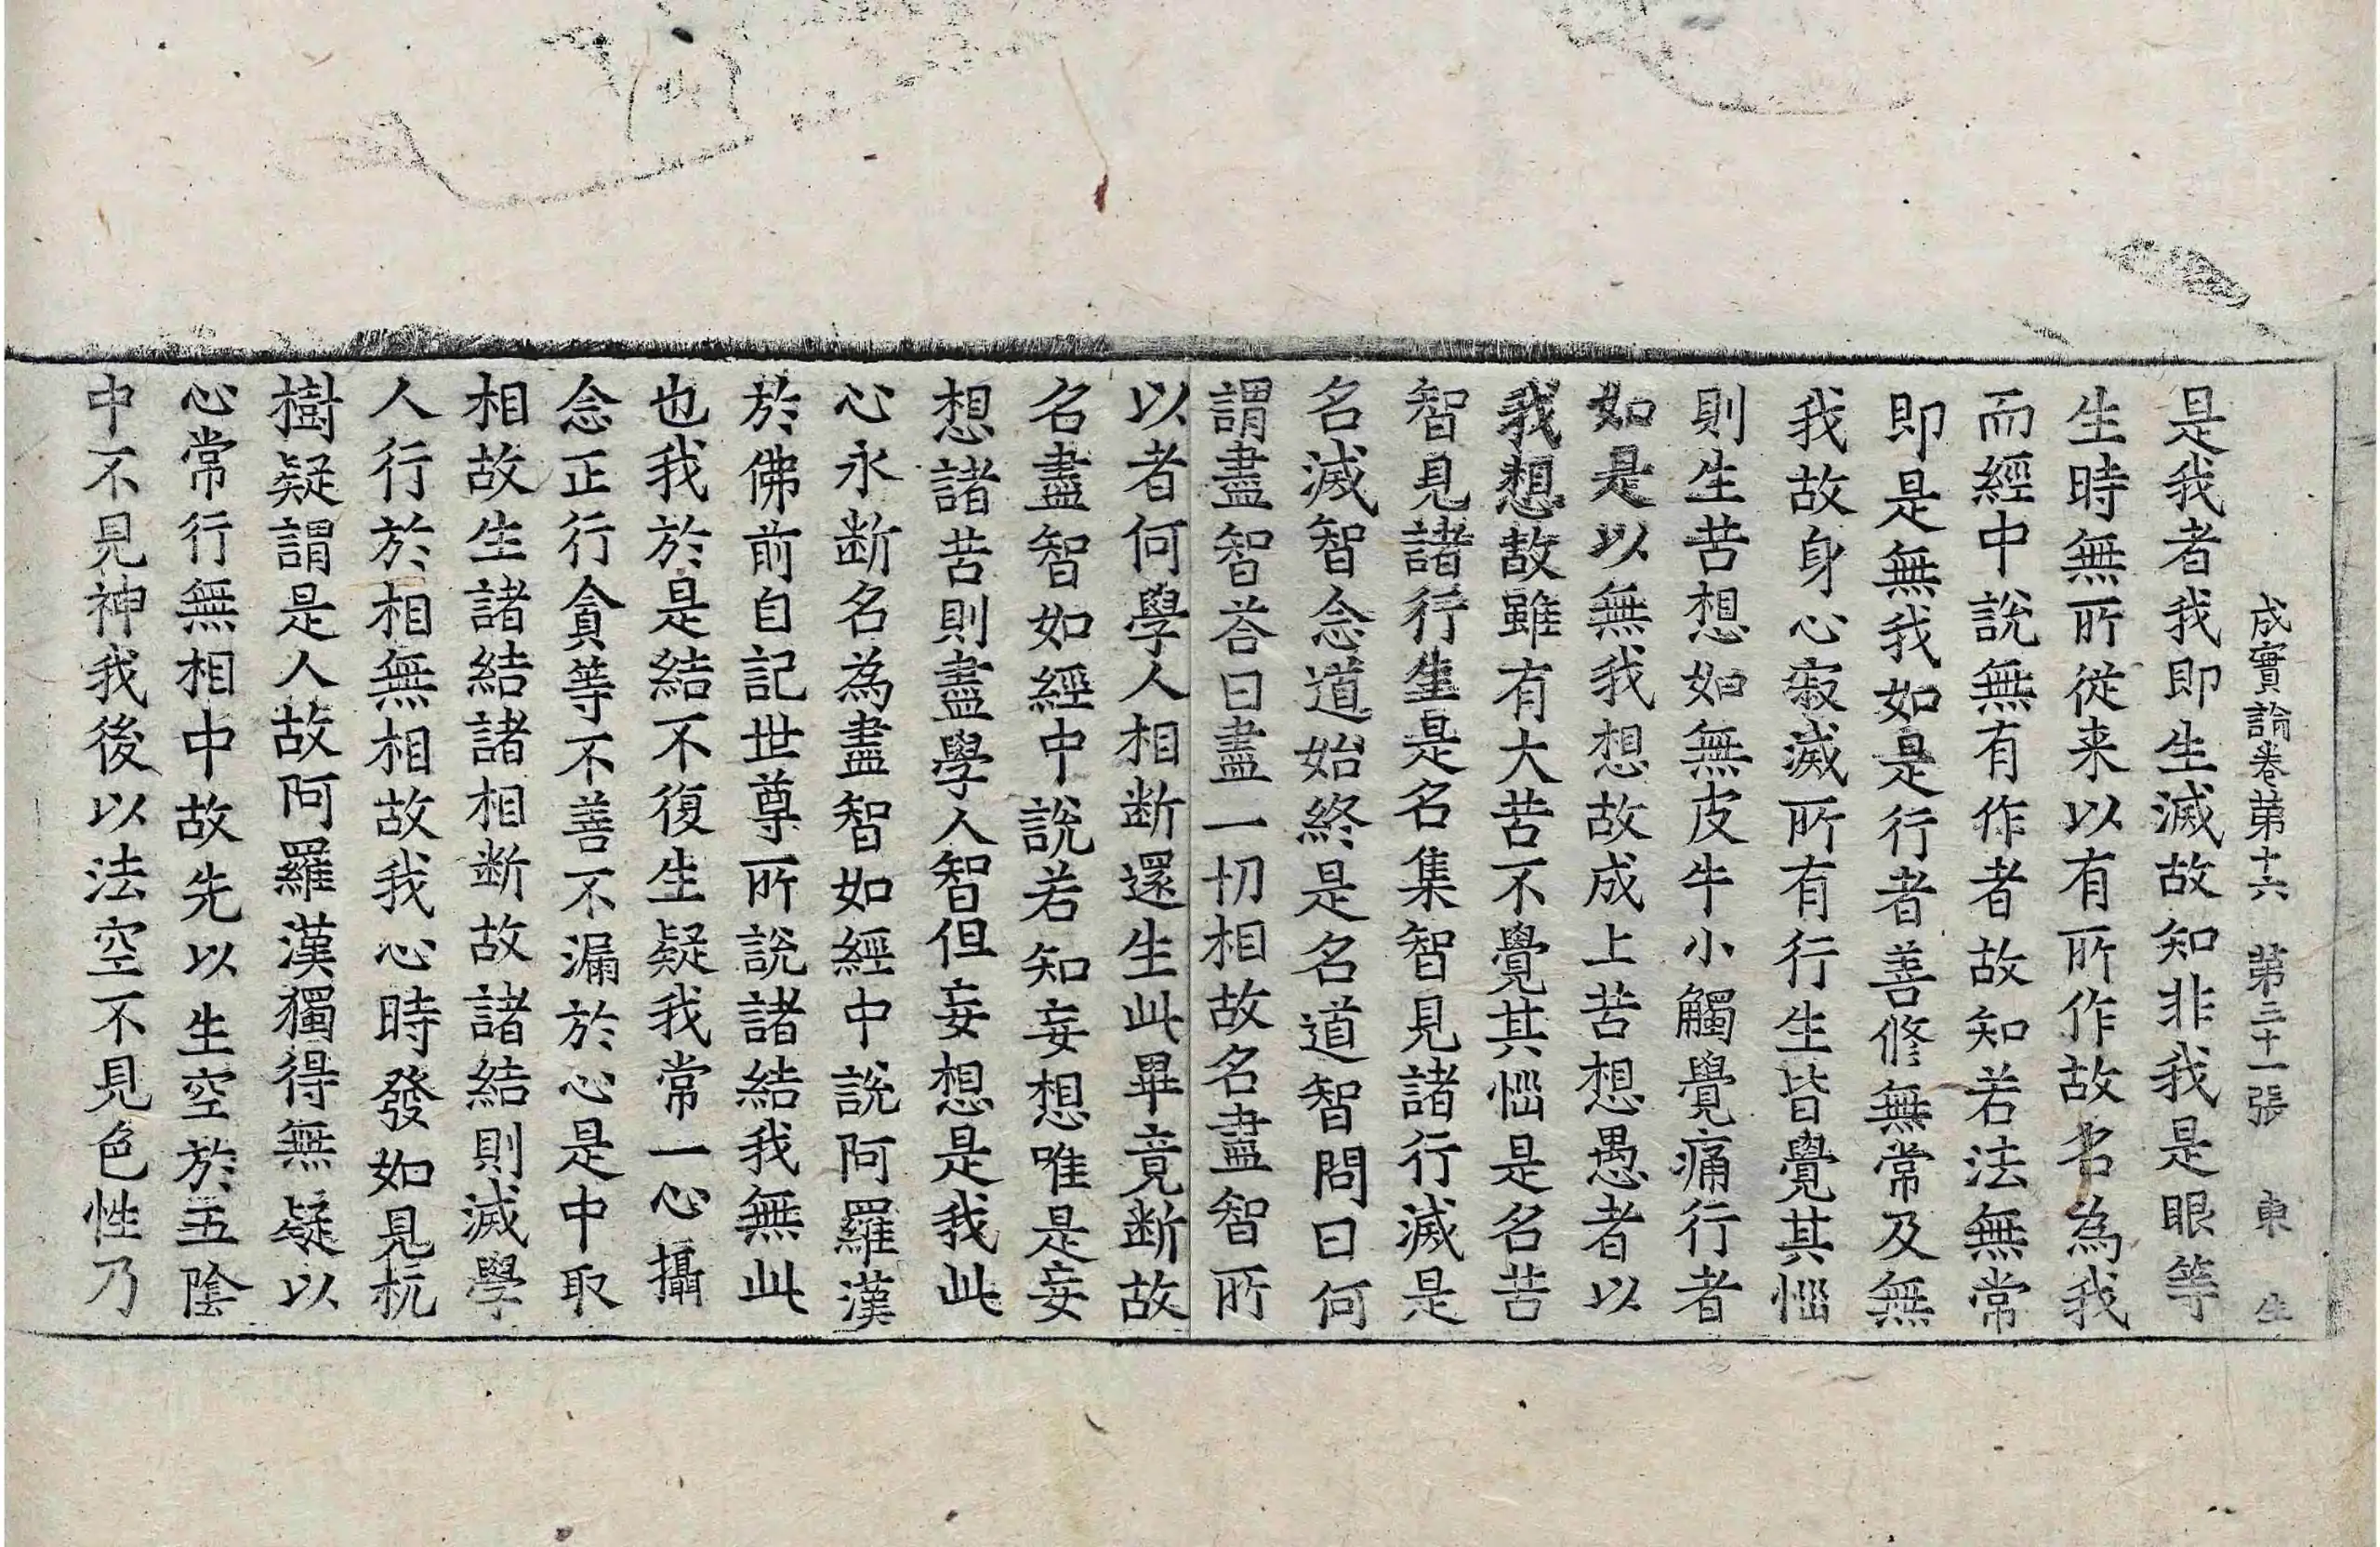 成實論卷苐十六　苐三十一張　東　生
是我者我即生滅故知非我是眼等
生時無所從来以有所作故名為我
而經中說無有作者故知若法無常
即是無我如是行者善修無常及無
我故身心寂滅所有行生皆覺其惱
則生苦想如無皮牛小觸覺痛行者
如是以無我想故成上苦想愚者以
我想故雖有大苦不覺其惱是名苦
智見諸行生是名集智見諸行滅是
名滅智念道始終是名道智問曰何
謂盡智荅曰盡一切相故名盡智所
以者何學人相断還生此畢竟断故
名盡智如經中說若知妄想唯是妄
想諸苦則盡學人智但妄想是我此
心永断名為盡智如經中說阿羅漢
於佛前自記世尊所說諸結我無此
也我於是結不復生疑我常一心攝
念正行貪等不善不漏於心是中取
相故生諸結諸相断故諸結則滅學
人行於相無相故我心時發如見杌
樹疑謂是人故阿羅漢獨得無疑以
心常行無相中故先以生空於五陰
中不見神我後以法空不見色性乃